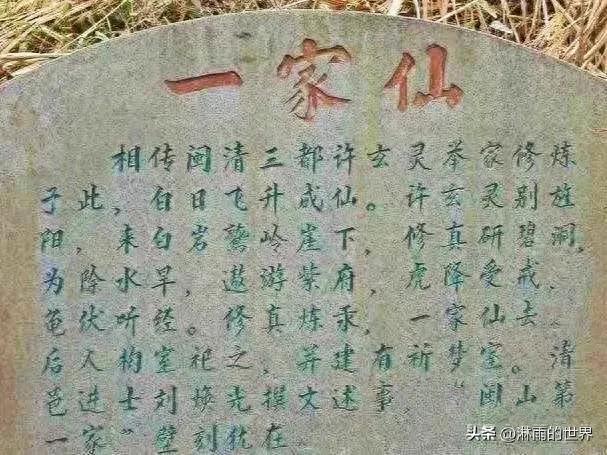 一家仙
相传闽清三都许玄灵举家修炼
于此，白日飞升成仙。许玄灵别旌
阳，来白岩鹫岭崖下，修真研碧洞，
为除水旱，遨游紫府，虎降受戒、
龟伏听经。修真炼汞，一家仙去、
后人构室祀之，并建有祈梦室。清
邑进士刘焕撰文述事，“闽山第
一家”壁刻犹在
头条 @淋雨的世界